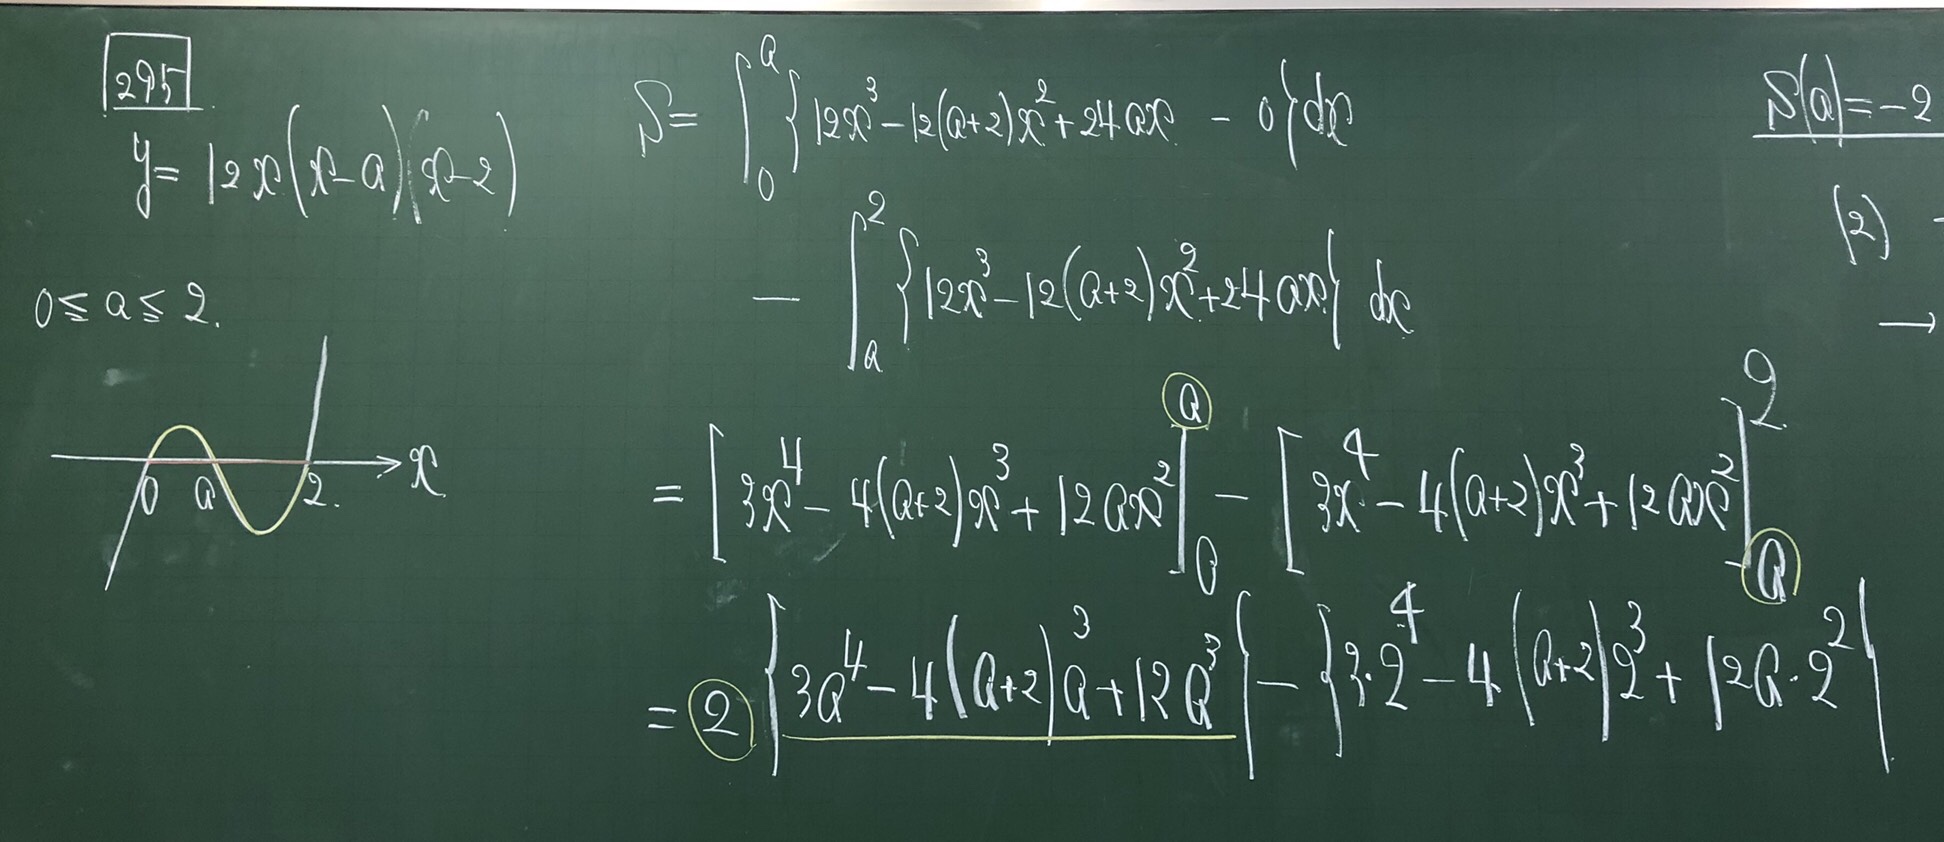 295
y = 12x(x-a)(x-2)
0 ≦ a ≦ 2.
0 a 2. x
S = ∫₀ᵃ {12x³ - 12(a+2)x² + 24ax - 0} dx
- ∫ₐ² {12x³ - 12(a+2)x² + 24ax} dx
= [3x⁴ - 4(a+2)x³ + 12ax²]₀ᵃ - [3x⁴ - 4(a+2)x³ + 12ax²]ₐ²
= 2{3a⁴ - 4(a+2)a³ + 12a³} - {3·2⁴ - 4(a+2)2³ + 12a·2²}
S(a) = -2
(2)
→